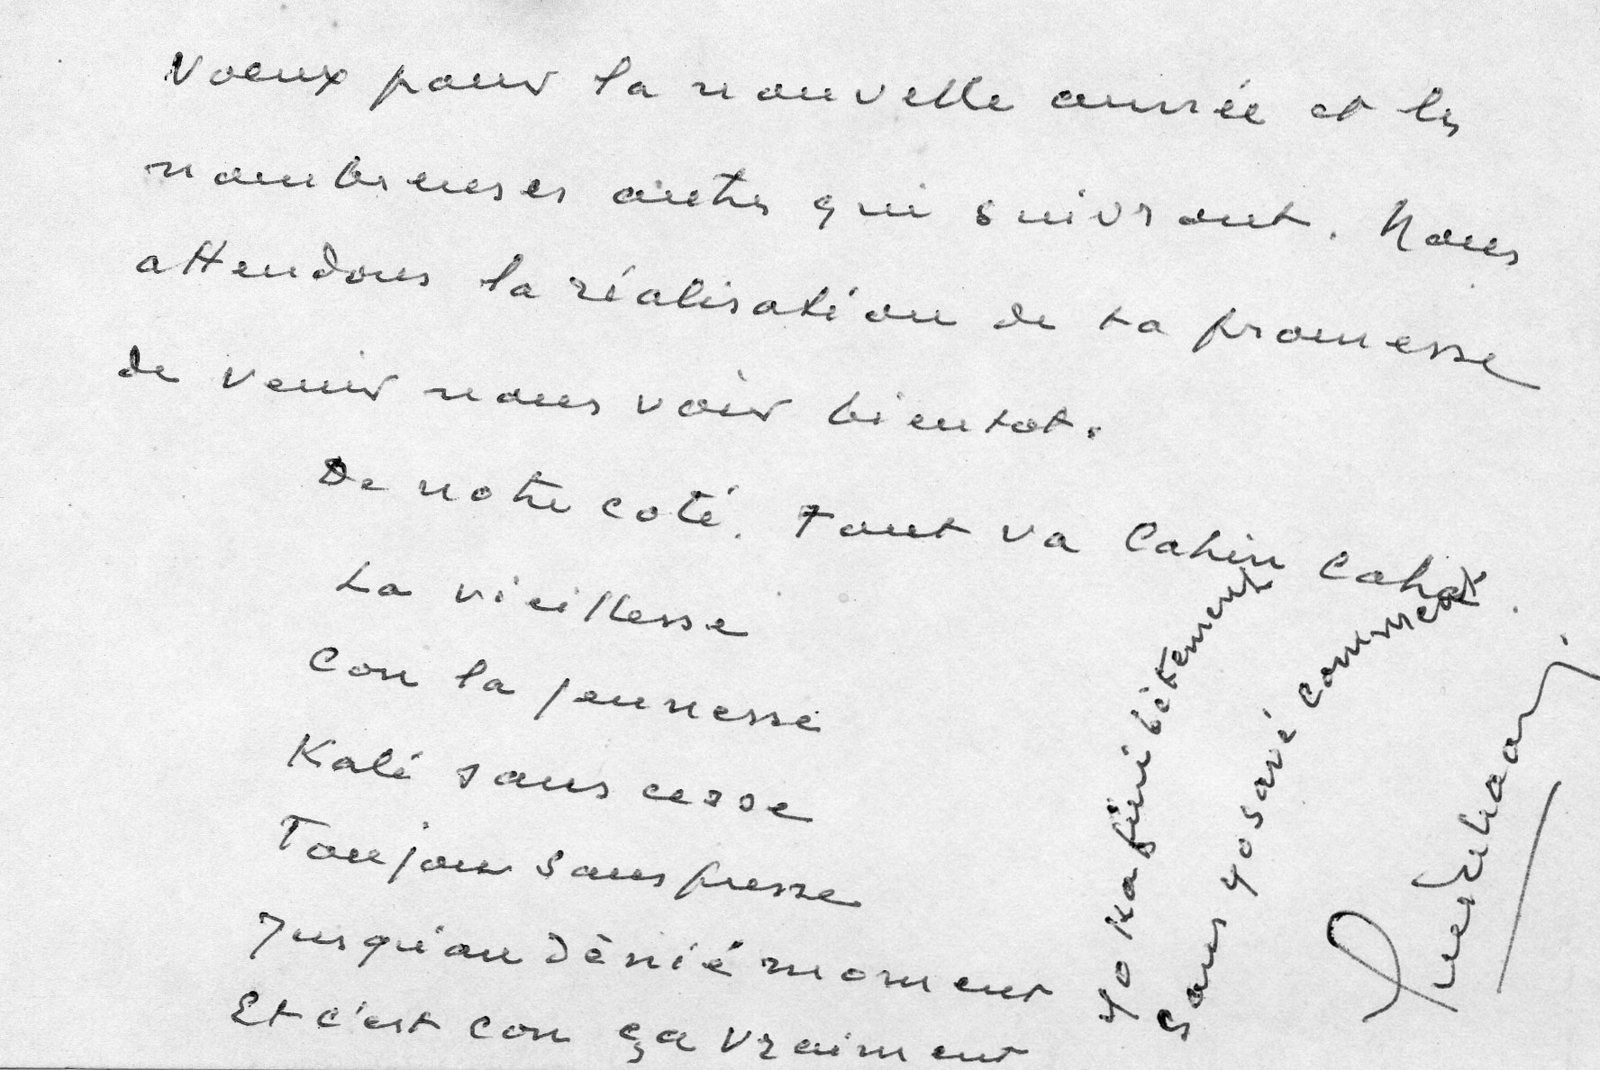 Voeux pour la nouvelle année et les
nombreuses autres qui suivront. Nous
attendons la réalisation de ta promesse
de venir nous voir bientot.
De notre coté. Tout va Cahin Caha.
La vieillesse
Con la jeunesse
Kalé sans cesse
Toujou sans presse
Jusqu'au dènié moment
Et c'est con ça vraiment
yo ka fini bètement
Sans yo savé comment